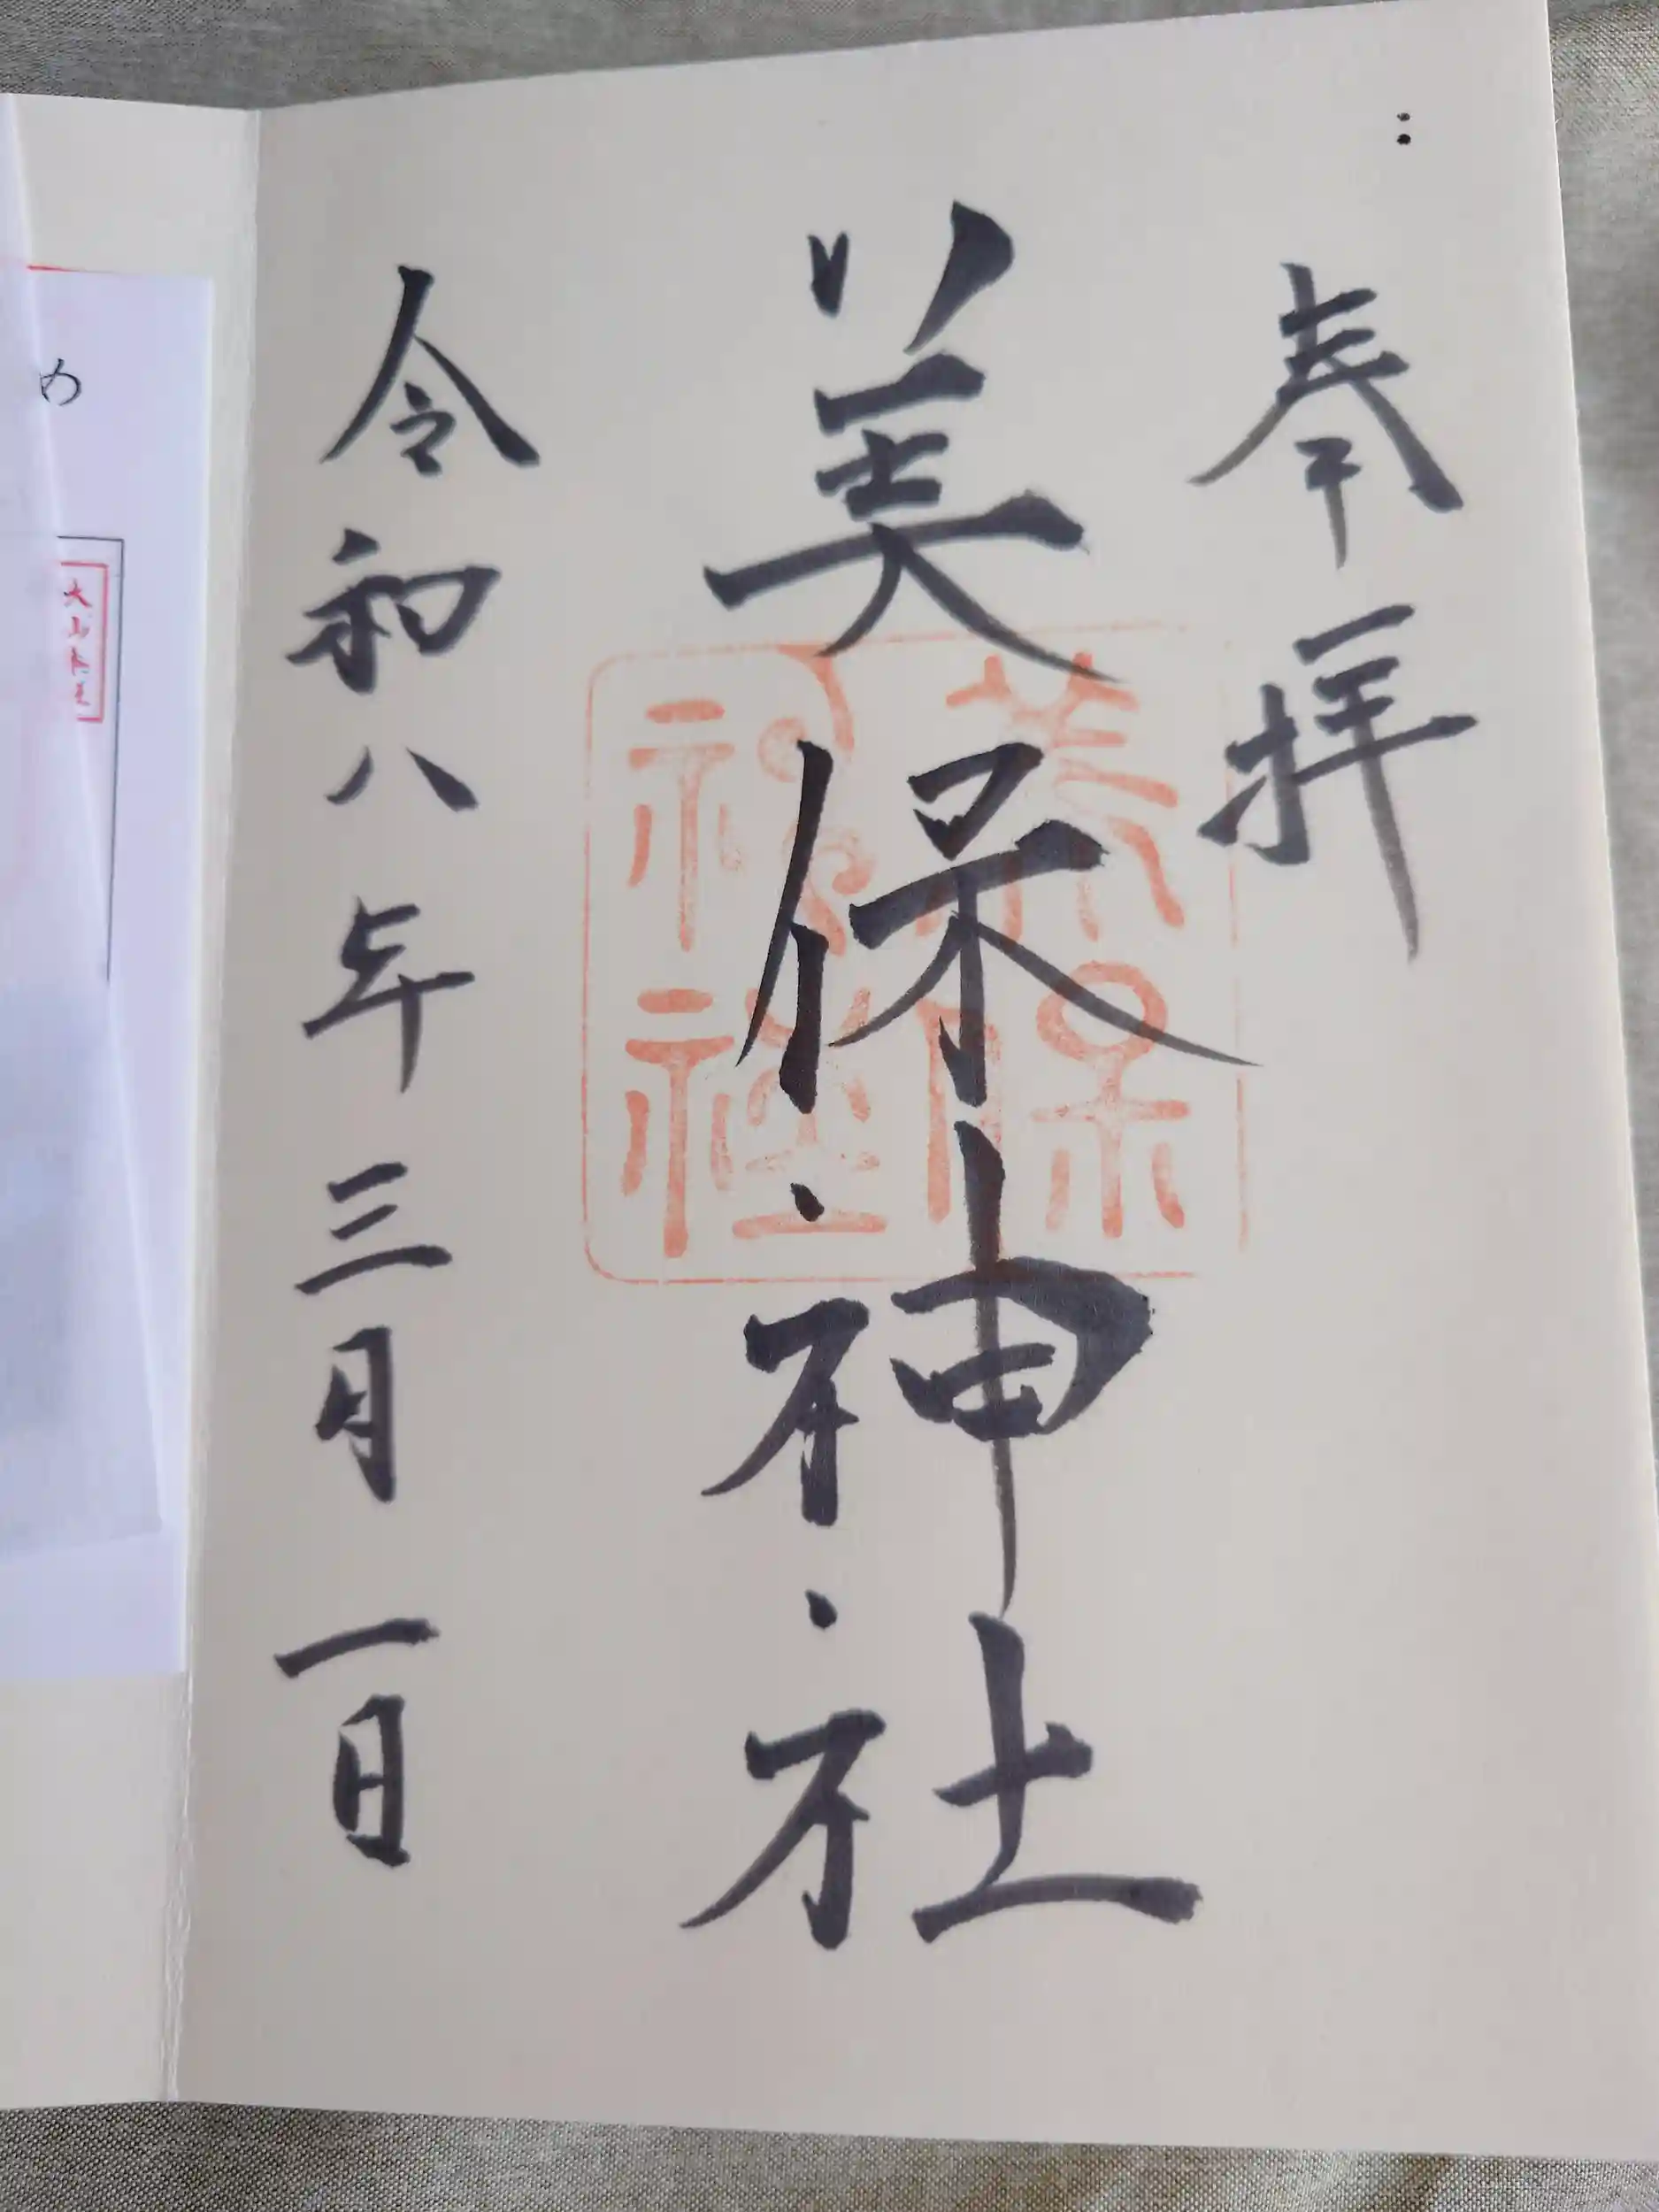 奉拝
美保神社
美保神社
令和八年三月一日
め